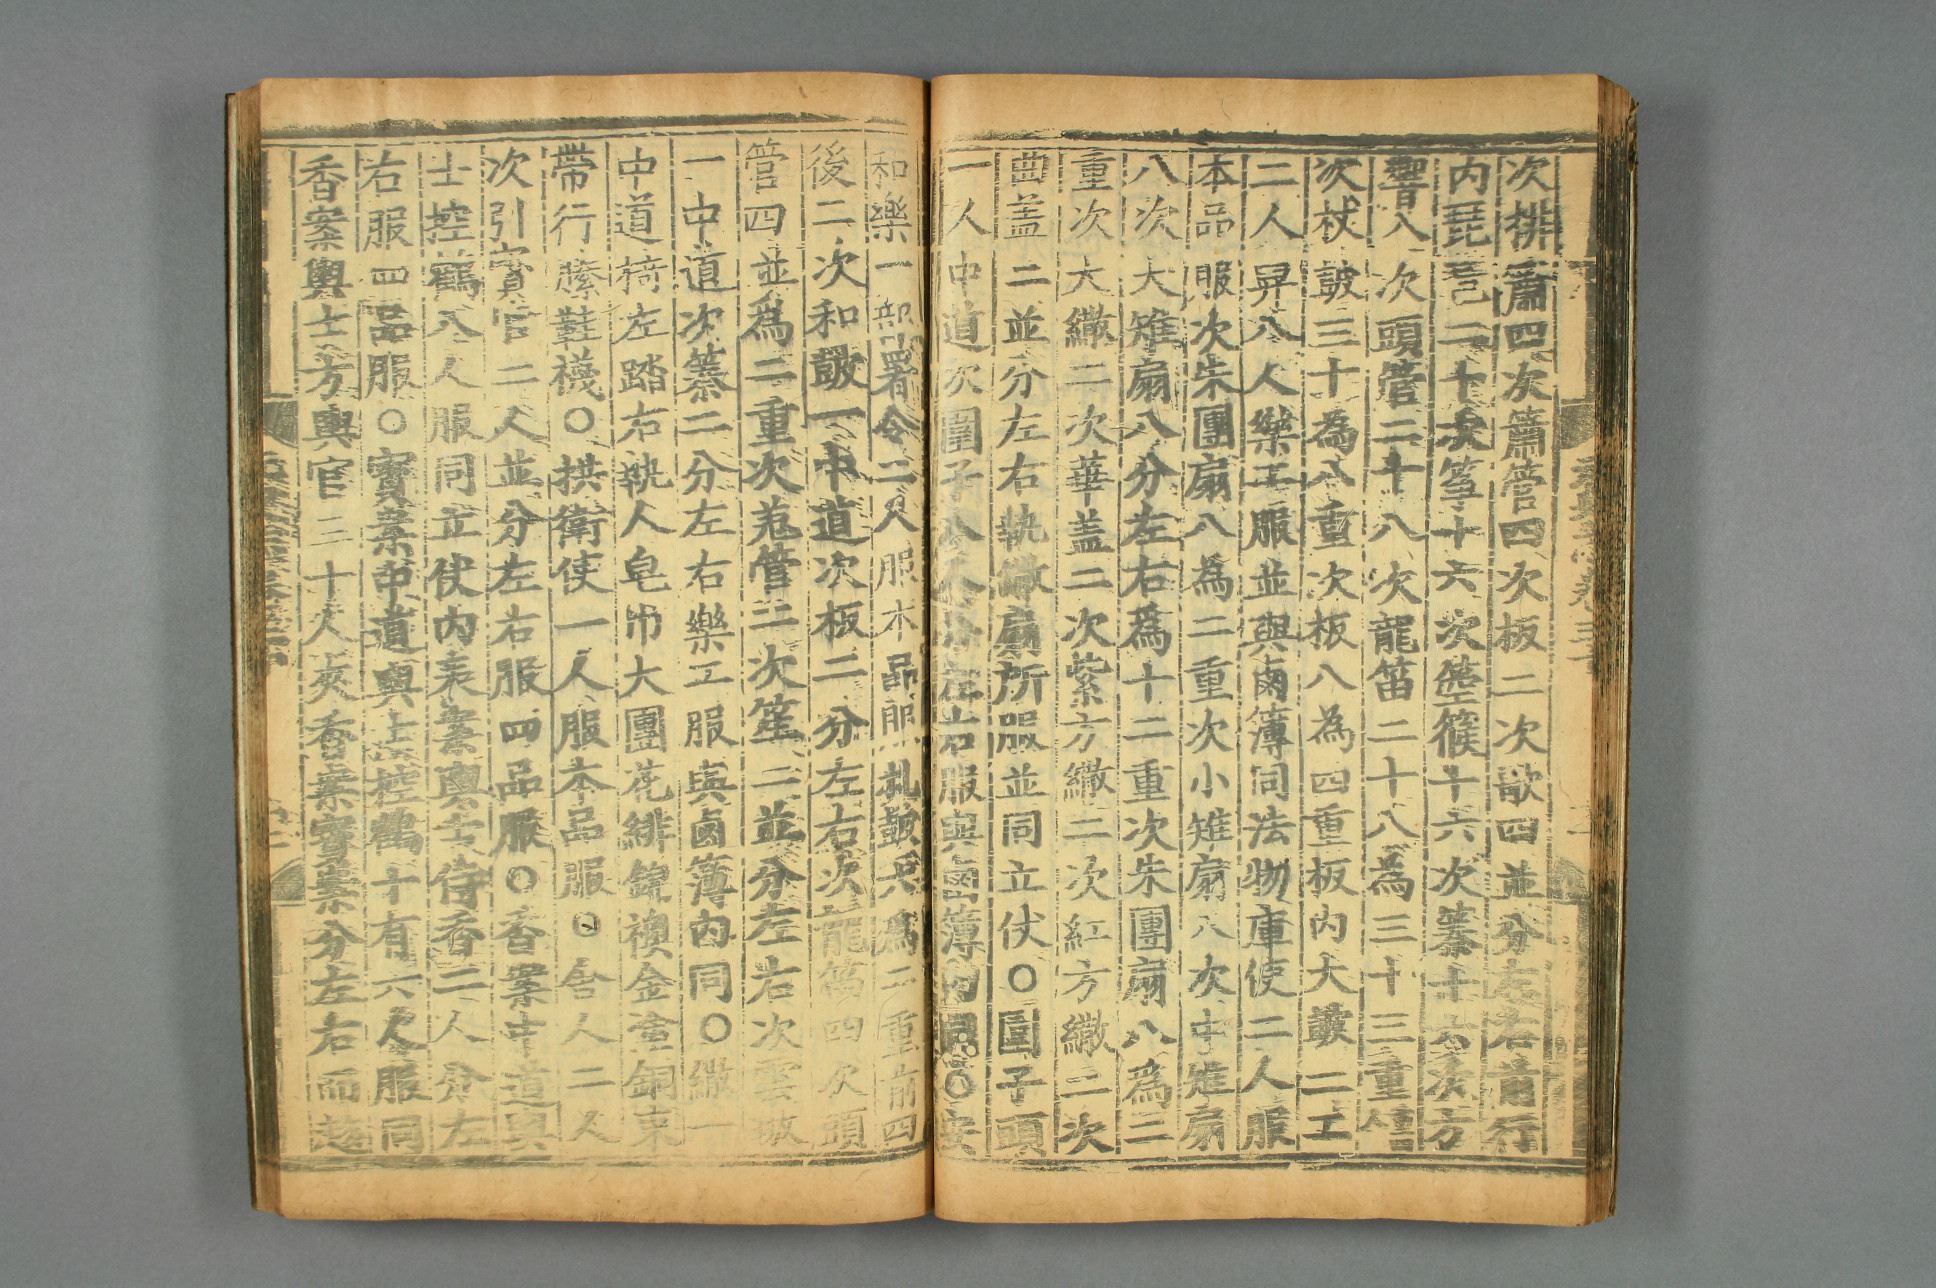 次排簫四次簫管四次板二次歌四並分左右前行
内琵琶二十次筝十六次箜篌十六次𥱧十六次方
響八次頭管二十八次龍笛二十八為三十三重
次杖鼓三十為八重次板八為四重板内大鼓二工
二人舁八人樂工服並與鹵簿同法物庫使二人服
本品服次朱團扇八為二重次小雉扇八次中雉扇
八次大雉扇八分左右為十二重次朱團扇八為二
重次大繖二次華盖二次紫方繖二次紅方繖二次
曲盖二並分左右執繖扇所服並同立仗○圍子頭
一人中道次圍子八人分左右服與鹵簿内同○安
和樂一部署令二人服本品服札鼓六為二重前四
後二次和鼓一中道次板二分左右次龍笛四次頭
管四並為二重次羌管二次笙二並分左右次雲璈
一中道次𥱧二分左右樂工服與鹵簿内同○繖一
中道椅左踏右執人皂巾大團花緋錦襖金塗銅束
帶行縢鞋襪○拱衛使一人服本品服○舍人二人
次引寳官二人並分左右服四品服○香案中道輿
士控鶴八人服同立仗内表案輿士侍香二人分左
右服四品服○寳案中道輿士控鶴十有六人服同
香案輿士方輿官三十人夾香案寳案分左右而趨